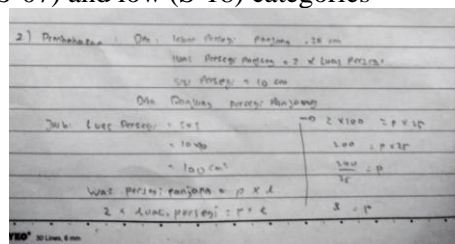 3-07) and low (S-18) categories
2.) Pembahasan : Dik : lebar Persegi Panjang = 25 cm
luas Persegi Panjang = 2 x luas Persegi
sisi Persegi = 10 cm
Dit : Panjang persegi Panjang
Jwb : Luas Persegi = sxs
= 10x10
= 100 cm²
Luas persegi panjang = p x l
2 x luas persegi = p x l
→ 2 x 100 = p x 25
200 = p x 25
200/25 = p
8 = p
30 Lines, 6 mm